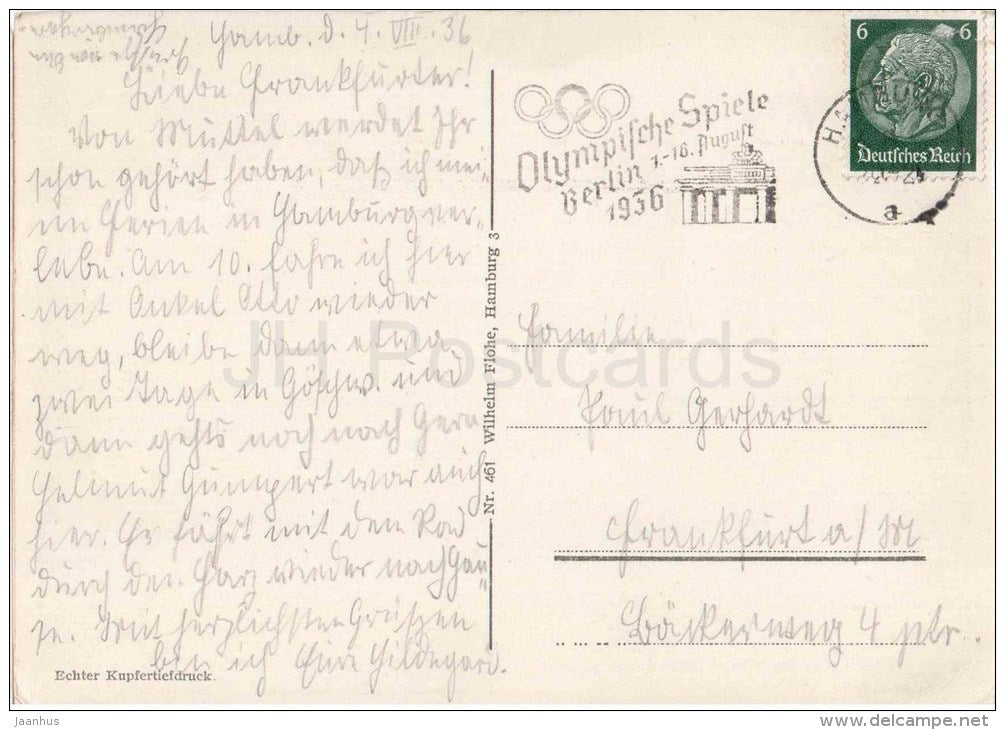 Hamb. d. 4. VIII. 36
Liebe Frankfurter!
Von Muttel werdet Ihr
schon gehört haben, daß ich mei-
ne Ferien in Hamburg ver-
lebe. Am 10. fahre ich hier
mit Onkel Otto wieder
weg, bleibe dann etwa
zwei Tage in Göschw. und
dann gehts noch nach Gera
Helmut Gumpert war auch
hier. Er fährt mit dem Rad
durch den Harz wieder nach Hau-
se. Mit herzlichsten Grüßen
bin ich Eure Hildegard.
Echter Kupfertiefdruck.
Nr. 461 Wilhelm Flohe, Hamburg 3
Olympische Spiele
Berlin 1.-16. August
1936
6 6
Deutsches Reich
a
Familie
Paul Gerhardt
Frankfurt a/M
Bäckerweg 4 ptr.
JH Postcards
Jaanhus
www.delcampe.net